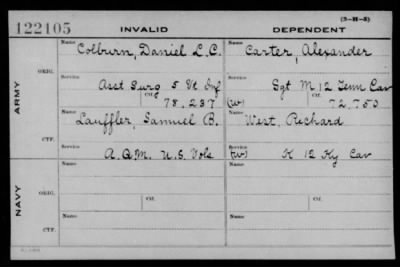 (3-H-5)
122105 INVALID DEPENDENT
ARMY
ORIG.
Name Colburn, Daniel L.C.
Name Carter, Alexander
Service Asst Surg 5 Vt Inf
Service Sgt M 12 Tenn Cav
Ctf. 78,237
(W) Ctf. 72,750
CTF.
Name Lauffler, Samuel B.
Name West, Richard
Service A.Q.M. U.S. Vols
Service (W) K 12 Ky Cav
NAVY
ORIG.
Name
Name
Service
Ctf.
Service
Ctf.
CTF.
Name
Name
Service
Service